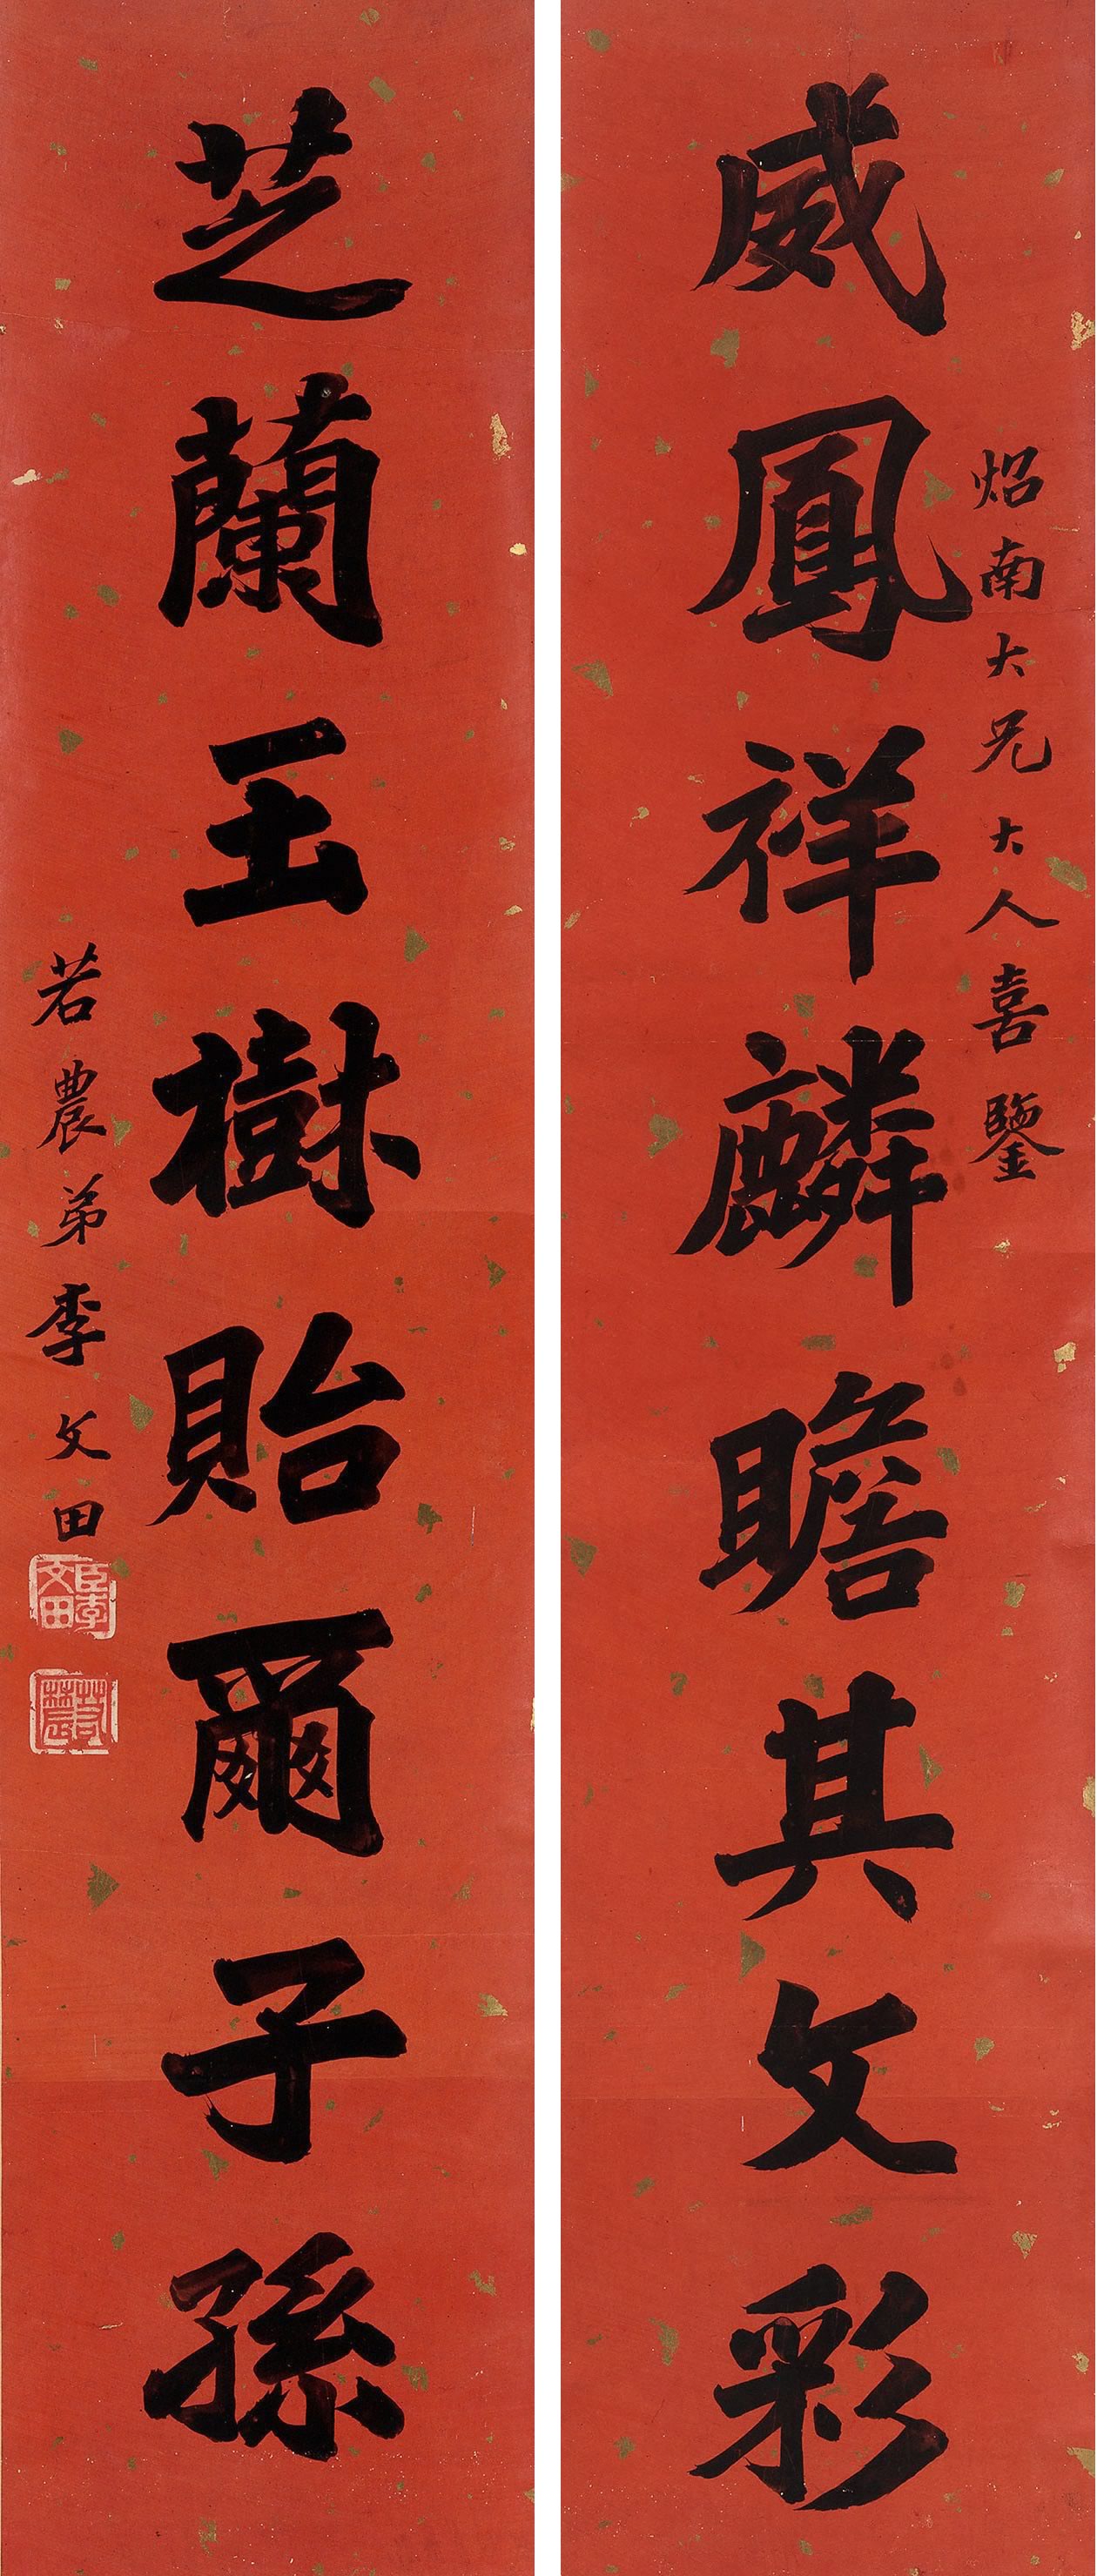 炤南大兄大人喜鑒
威鳳祥麟瞻其文彩
芝蘭玉樹貽爾子孫
若農弟李文田
臣李文田
若農